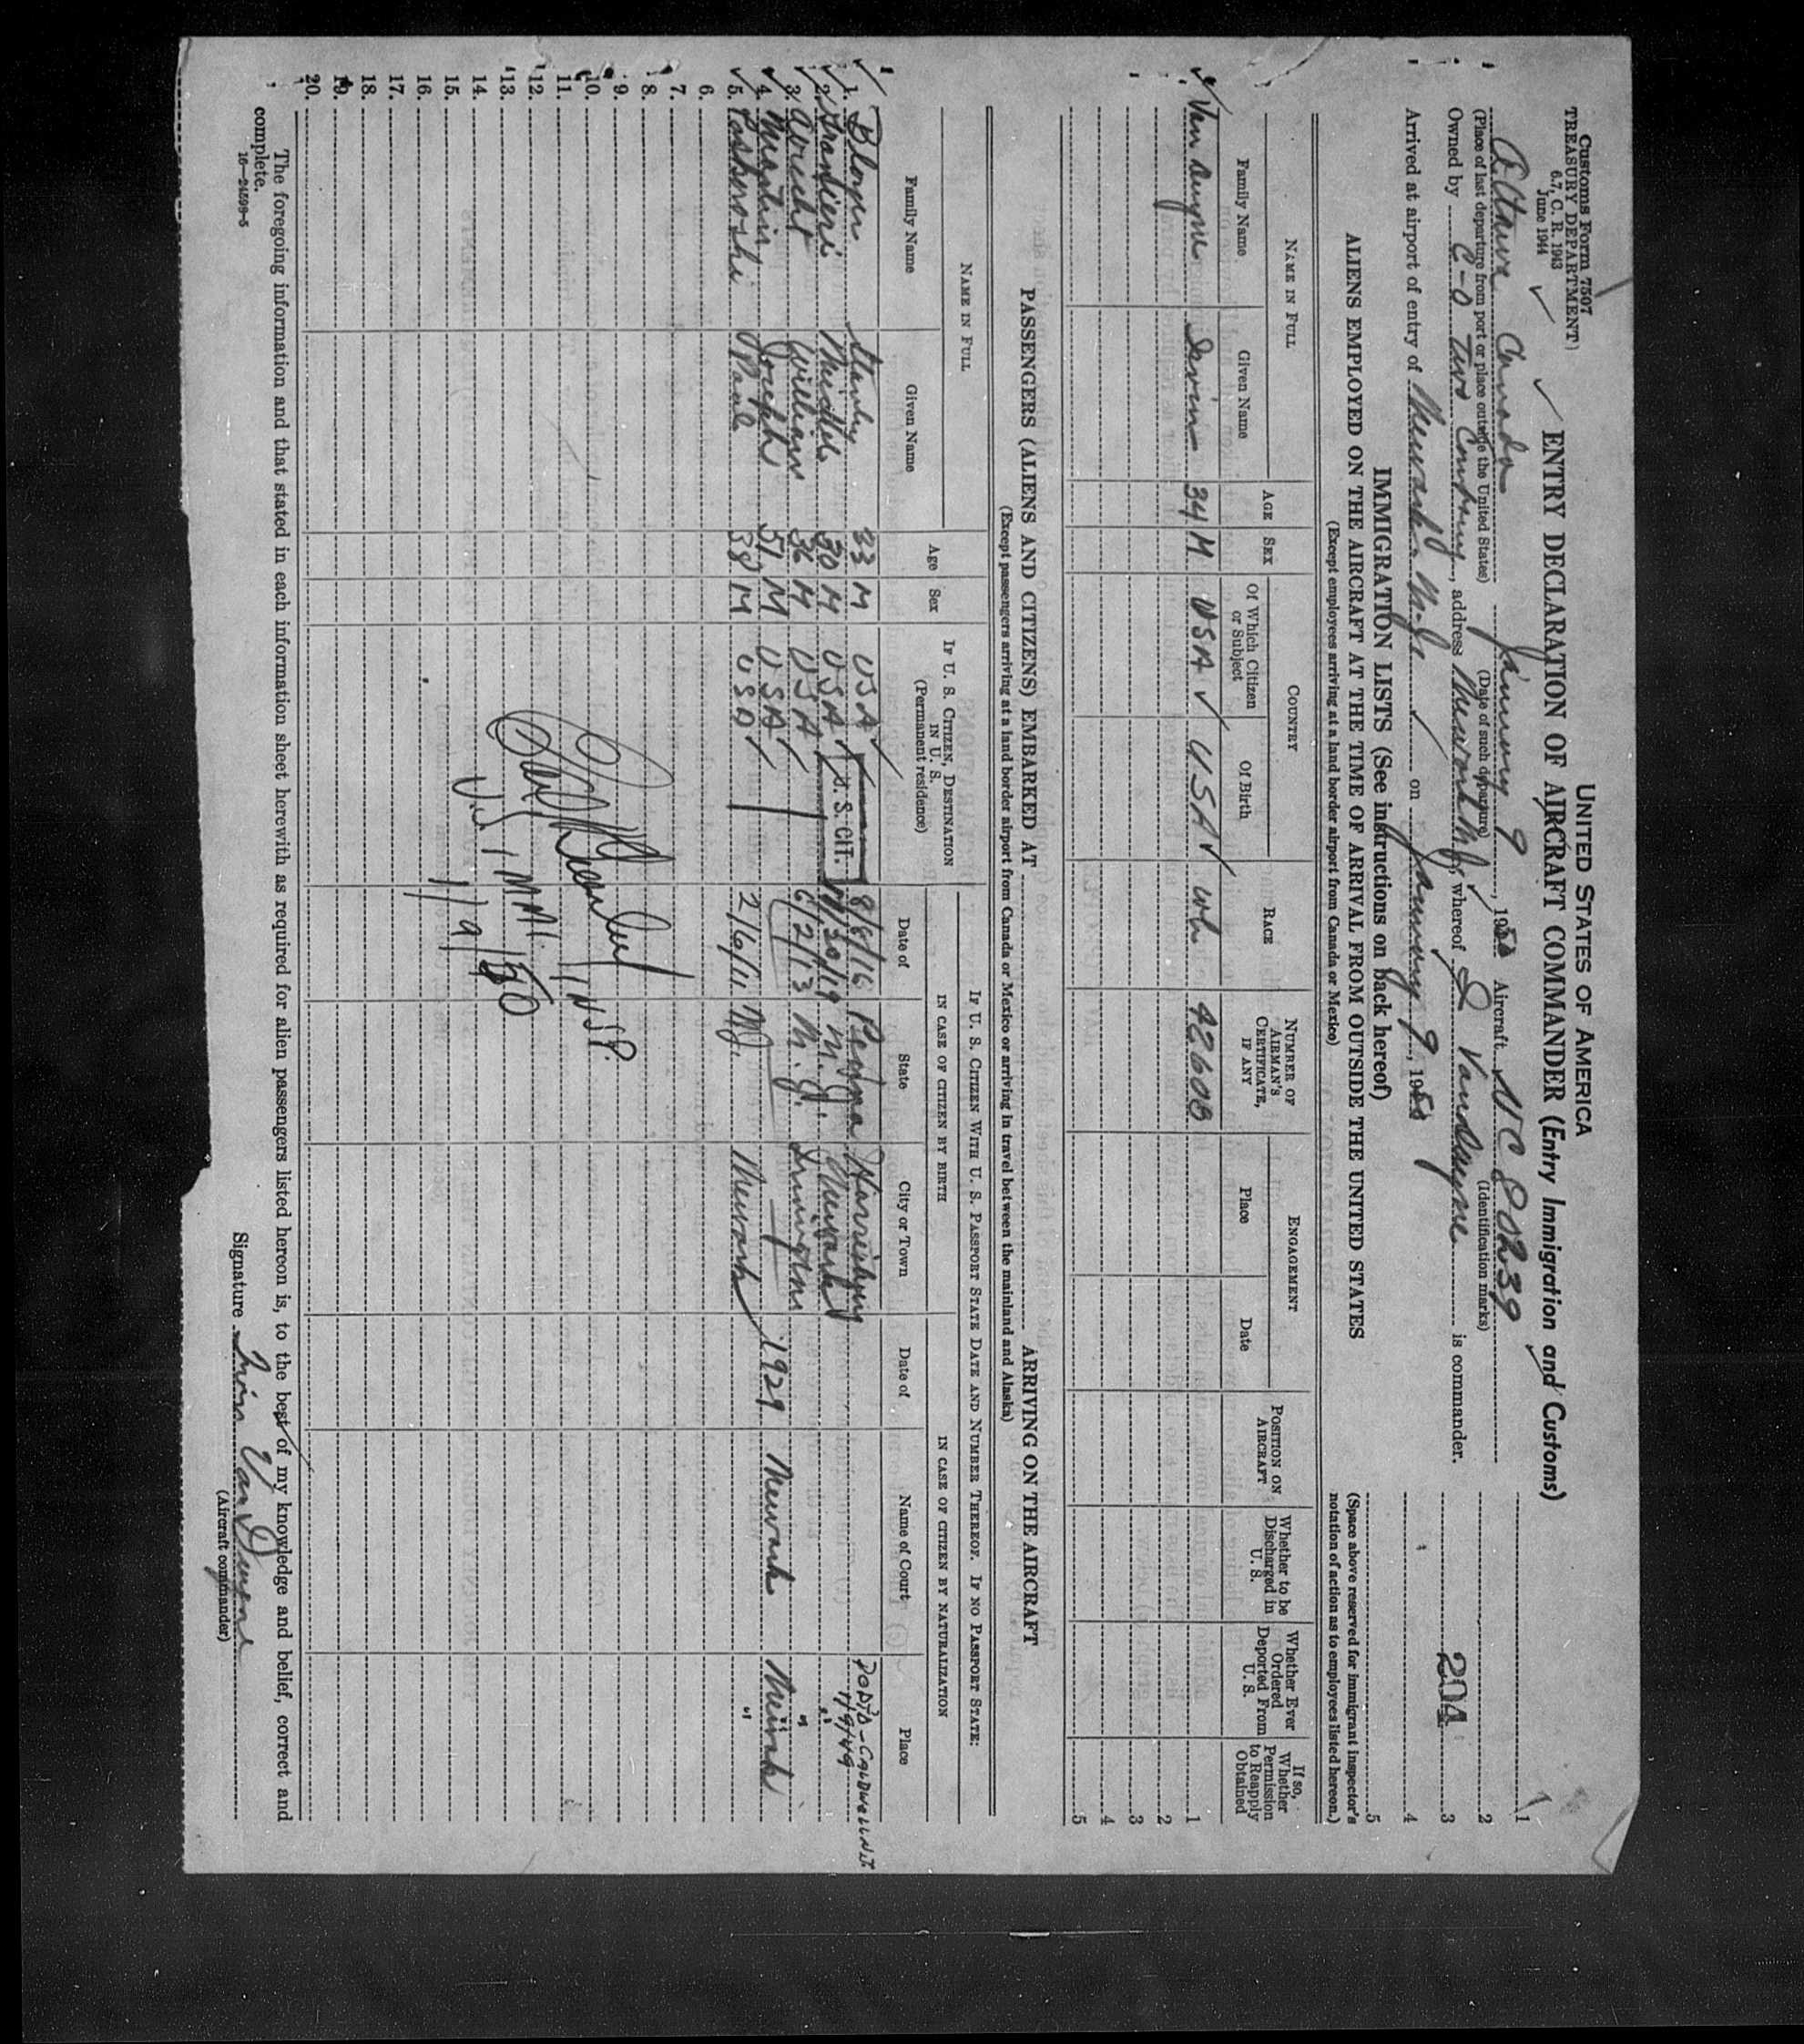 Customs Form 7507
TREASURY DEPARTMENT
6.7, C. R. 1943
June 1944
UNITED STATES OF AMERICA
ENTRY DECLARATION OF AIRCRAFT COMMANDER (Entry Immigration and Customs)
Ottawa Canada January 9, 1950 Aircraft NC 80239
(Place of last departure from port or place outside the United States) (Date of such departure) (Identification marks)
Owned by C-O Two Company, address Newark NJ, whereof I Van Duyne is commander.
Arrived at airport of entry of Newark N.J. on January 9, 1950
1
2
3 204
4
5
(Space above reserved for immigrant inspector's notation of action as to employees listed hereon.)
IMMIGRATION LISTS (See instructions on back hereof)
ALIENS EMPLOYED ON THE AIRCRAFT AT THE TIME OF ARRIVAL FROM OUTSIDE THE UNITED STATES
(Except employees arriving at a land border airport from Canada or Mexico)
NAME IN FULL
Family Name Given Name
AGE SEX
COUNTRY
Of Which Citizen or Subject Of Birth
RACE
NUMBER OF AIRMAN'S CERTIFICATE, IF ANY
ENGAGEMENT
Place Date
POSITION ON AIRCRAFT
Whether to be Discharged in U. S.
Whether Ever Ordered Deported From U. S.
If so, Whether Permission to Reapply Obtained
Van Duyne Irvin 34 M USA USA wh 42608 1
2
3
4
5
PASSENGERS (ALIENS AND CITIZENS) EMBARKED AT ARRIVING ON THE AIRCRAFT
(Except passengers arriving at a land border airport from Canada or Mexico or arriving in travel between the mainland and Alaska)
NAME IN FULL
Family Name Given Name
Age Sex
IF U. S. CITIZEN, DESTINATION IN U. S.
(Permanent residence)
IF U. S. CITIZEN WITH U. S. PASSPORT STATE DATE AND NUMBER THEREOF. IF NO PASSPORT STATE:
IN CASE OF CITIZEN BY BIRTH
Date of State City or Town
IN CASE OF CITIZEN BY NATURALIZATION
Date of Name of Court Place
1. Stanley 33 M USA 8/8/16 Penna Harrisburg
1/9/49
2. 30 M USA U. S. CIT. /30/19 N.J. Newark "
3. William 36 M USA 6/2/13 N.J. "
4. Martin Joseph 51 M USA 1929 Newark Newark
5. Paul 38 M USA 2/6/11 NJ. Newark "
6.
7.
8.
9.
10.
11.
12. INSP.
13. U.S. IMM.
14. 1/9/50
15.
16.
17.
18.
19.
20.
The foregoing information and that stated in each information sheet herewith as required for alien passengers listed hereon is, to the best of my knowledge and belief, correct and
complete.
16—24598-5
Signature Irvin Van Duyne
(Aircraft commander)